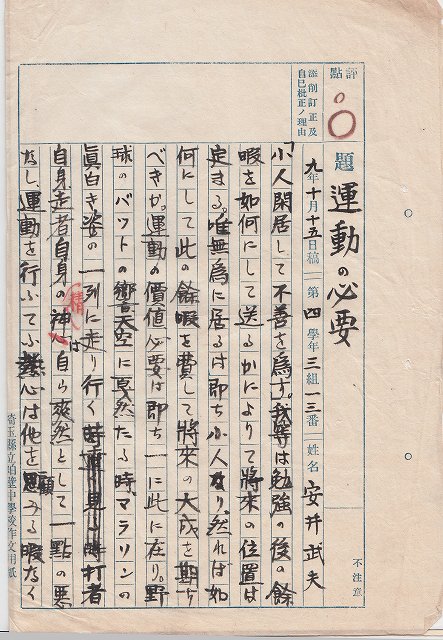 評點
添削訂正及
自己批正ノ理由
題 運動の必要
九年十月十五日稿 第四學年三組一三番 姓名 安井武夫
不注意
「小人閑居して不善を為す。我等は勉強の後の餘
暇を如何にして送るかによりて將來の位置は
定まる。唯無為に居るは即ち小人なり、然れば如
何にして此の餘暇を費して將來の大成を期す
べきか。運動の價値必要は即ち一に此に在り。野
球のバットの響天空に戛然たる時、マラソンの
眞白き姿の一列に走り行く時
打者
自身、走者自身の精神は自ら爽然として一點の悪
なし、運動を行ふてふ心は他を顧みる暇なく
埼玉縣立粕壁中學校作文用紙